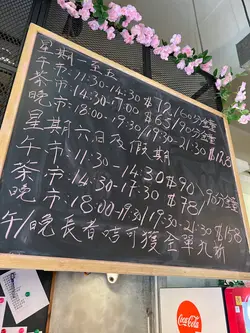 星期一至五
午市:11:30-14:30 $72/60分鐘
茶市:14:30-17:00 $65/90分鐘
晚市:18:00-19:30/19:30-21:30 $138
星期六日及假期
午市:11:30 14:30 $90
茶市:14:30-17:30 $78/90分鐘
晚市:18:00-19:30/19:30-21:30 $158
午/晚長者咭可獲全單九折
Coca-Cola